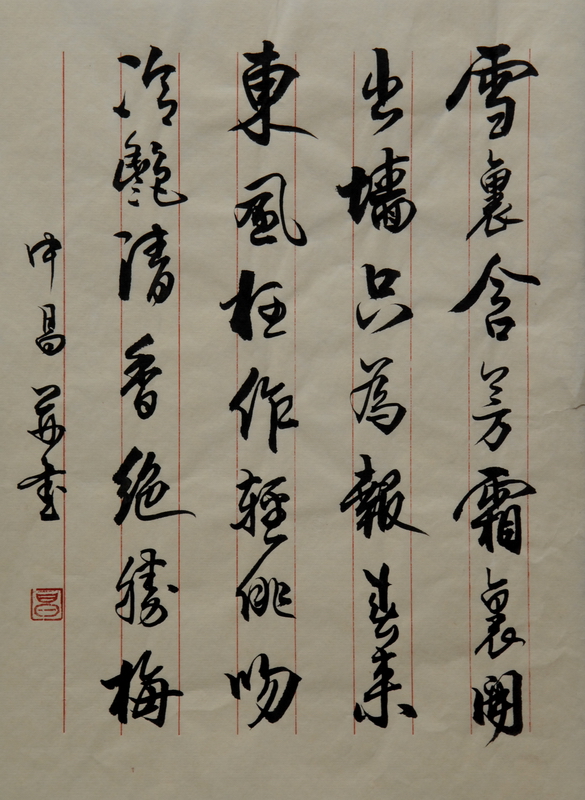 雪裏含芳霜裏開
出墻只為報春來
東風枉作輕佻吻
冷艷清香絕勝梅
中昌并書
昌